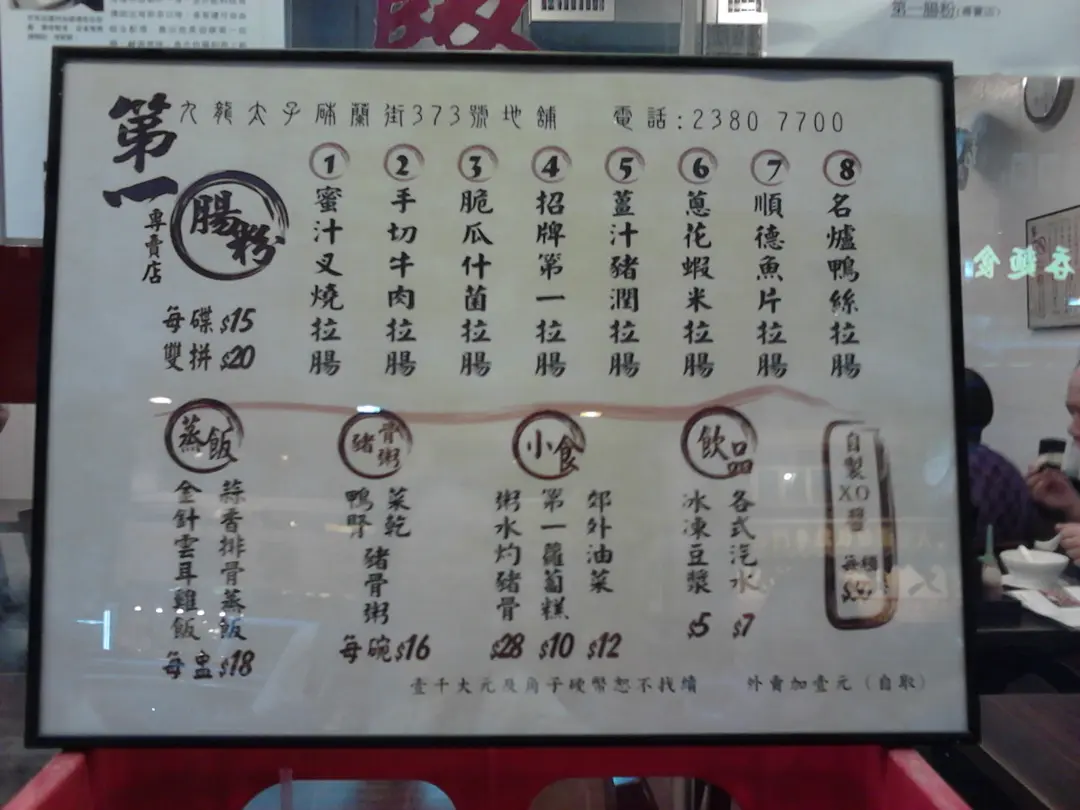 第一腸粉(專賣店)
九龍太子砵蘭街373號地舖 電話:2380 7700
第一
腸粉
專賣店
每碟$15
雙拼$20
1 蜜汁叉燒拉腸
2 手切牛肉拉腸
3 脆瓜什菌拉腸
4 招牌第一拉腸
5 薑汁豬潤拉腸
6 蔥花蝦米拉腸
7 順德魚片拉腸
8 名爐鴨絲拉腸
蒸飯
蒜香排骨蒸飯
金針雲耳雞飯
每盅$18
豬骨粥
菜乾
鴨腎
豬骨粥
每碗$16
小食
郊外油菜
$12
第一蘿蔔糕
$10
粥水灼豬骨
$28
飲品
各式汽水
$7
冰凍豆漿
$5
自製XO醬
壹千大元及角子硬幣恕不找續 外賣加壹元(自取)